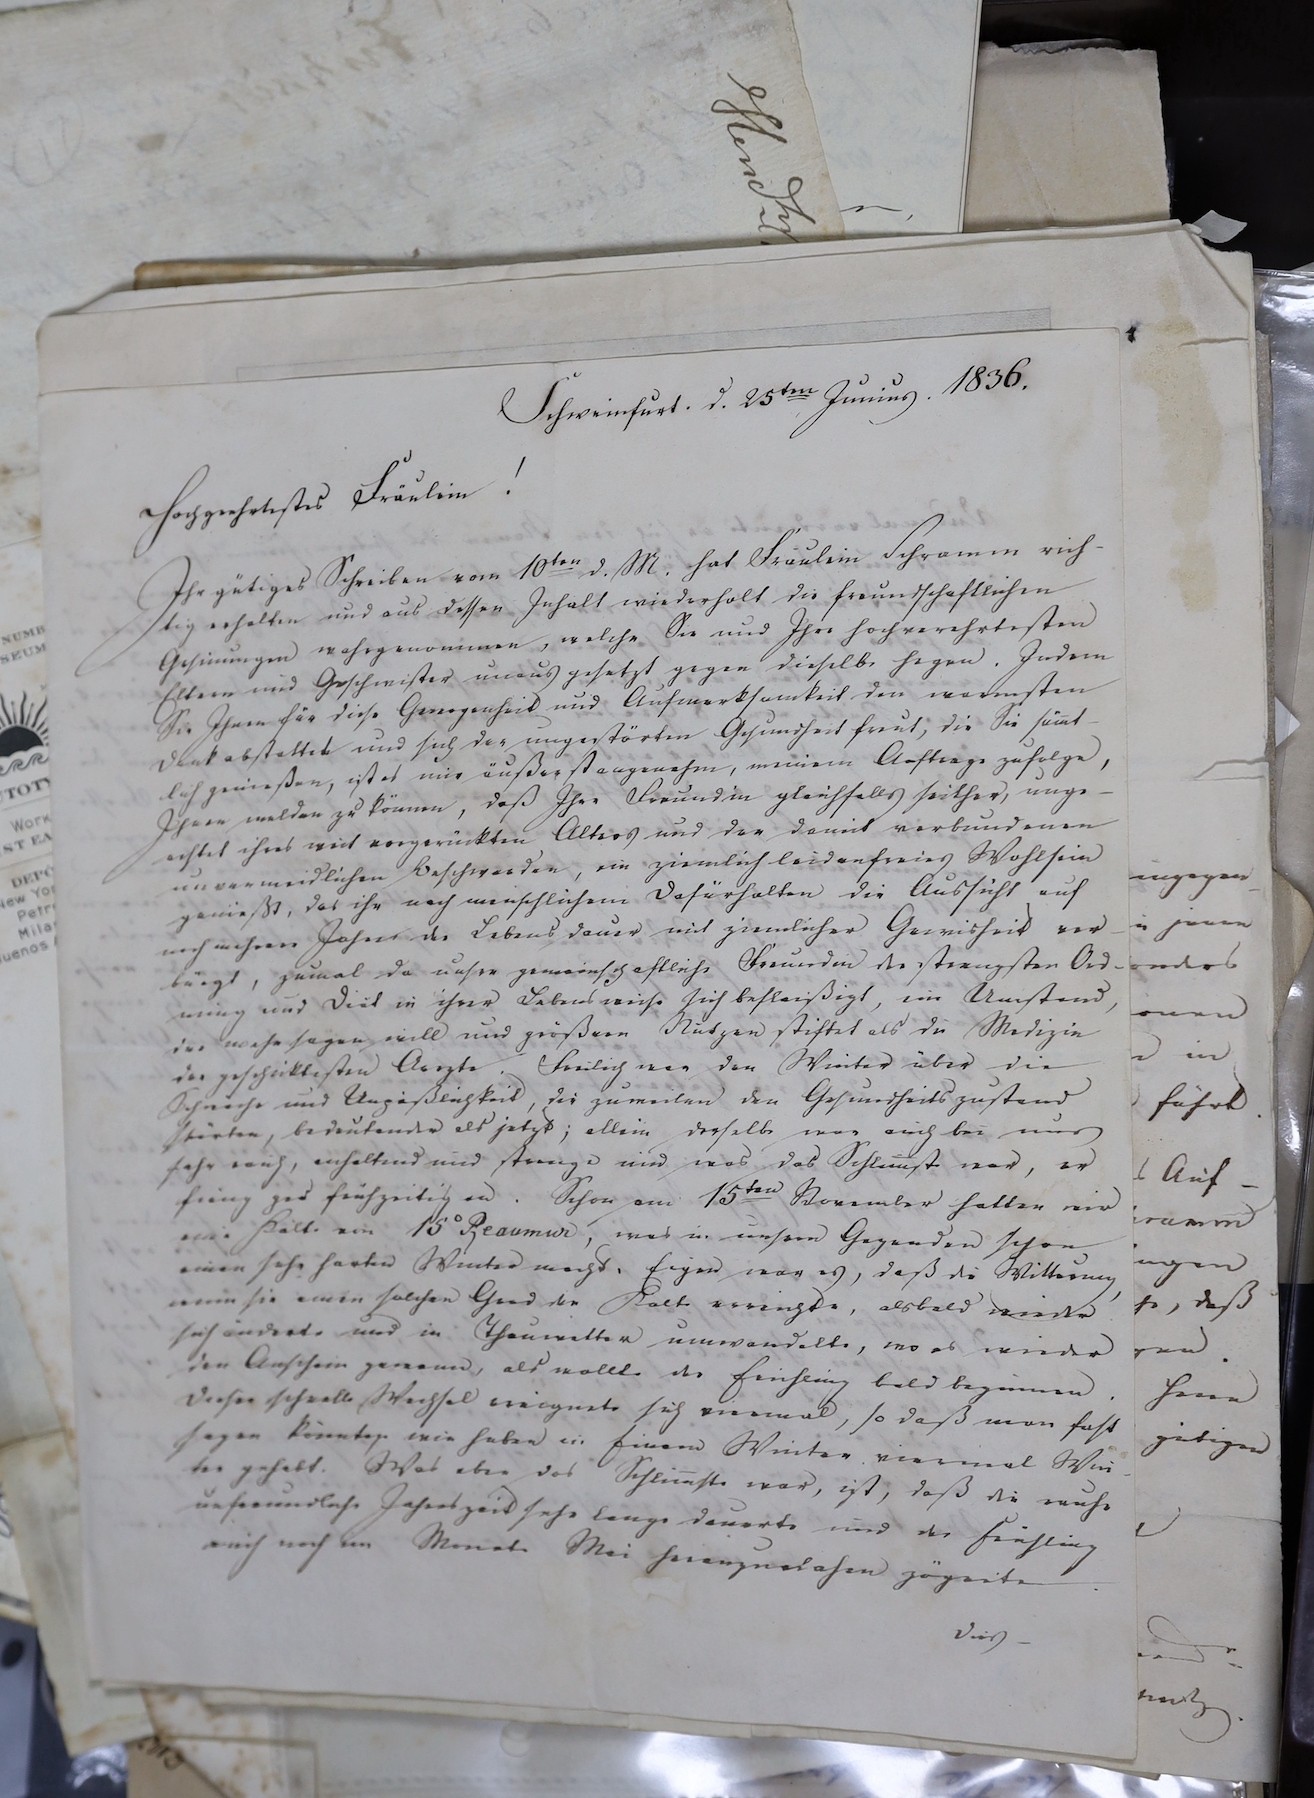 Handr
Schweinfurt. d. 25ten Junius. 1836.
Hochgeehrtestes Fräulein!
Ihr gütiges Schreiben vom 10ten d. M. hat Fräulein Schramm rich-
tig erhalten und aus dessen Inhalt wiederholt die freundschaftlichen
Gesinnungen wahrgenommen, welche Sie und Ihre hochverehrtesten
Eltern und Geschwister unausgesetzt gegen dieselbe hegen. Indem
Sie Ihnen für diese Gewogenheit und Aufmerksamkeit den wärmsten
Dank abstattet und sich der ungestörten Gesundheit freut, die Sie sämt-
lich genießen, ist es mir äußerst angenehm, meinem Auftrage zufolge,
Ihnen melden zu können, daß Ihre Freundin gleichfalls seither, unge-
achtet ihres weit vorgerückten Alters und der damit verbundenen
unvermeidlichen Beschwerden, ein ziemlich leidenfreies Wohlsein
genießt, das ihr nach menschlichem Dafürhalten die Aussicht auf
noch mehrere Jahre der Lebensdauer mit ziemlicher Gewisheit ver-
bürgt, zumal da unsere gemeinschaftliche Freundin der strengsten Ord-
nung und Diät in ihrer Lebensweise sich befleißigt, ein Umstand,
der mehr sagen will und größern Nutzen stiftet als die Medizin
der geschicktesten Aerzte. Freilich war den Winter über die
Schwäche und Unpäßlichkeit, die zuweilen den Gesundheitszustand
störten, bedeutender als jetzt; allein derselbe war auch bei uns
sehr rauh, anhaltend und strenge und was das Schlimste war, er
fieng gar frühzeitig an. Schon am 15ten November hatten wir
eine Kälte von 15° Reaumur, was in unsern Gegenden schon
einen sehr harten Winter macht. Eigen war es, daß die Witterung,
wenn sie einen solchen Grad der Kälte erreichte, alsbald wieder
sich änderte und in Thauwetter umwandelte, wo es wieder
den Anschein gewann, als wollte der Frühling bald beginnen.
Dieser schnelle Wechsel ereignete sich viermal, so daß man fast
sagen könnte, wir haben in Einem Winter viermal Win-
ter gehabt. Was aber das Schlimste war, ist, daß die rauhe
unfreundliche Jahreszeit sehr lange dauerte und der Frühling
auch noch im Monate Mai heranzunahen zögerte.
Dies-
ingegen-
in jenen
anders
in
führt.
Auf-
Schramm
ungen
daß
Herrn
gütigen
NUMB
SEUM
TOTY
Work
ST EA
DEPO
New Yor
Petr
Mila
uenos